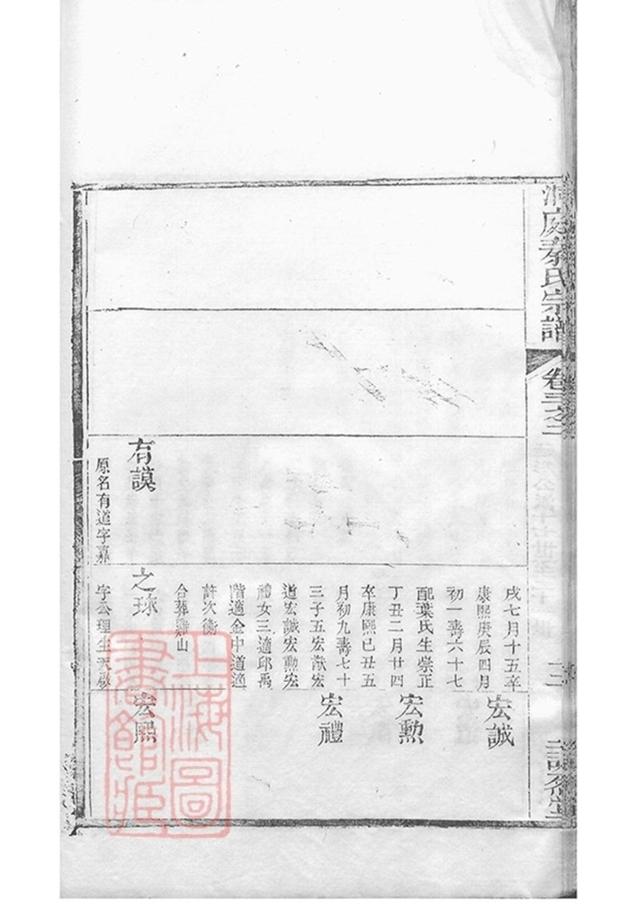 洞庭秦氏宗譜
卷三之二
三
戌七月十五卒
康熙庚辰四月
初一壽六十七
配葉氏生崇正
丁丑二月廿四
卒康熙己丑五
月初九壽七十
三子五宏猷宏
道宏誠宏勳宏
禮女三適邱禹
階適金中道適
許次衡
合葬雞山
宏誠
宏勳
宏禮
有謨
原名有道字嘉
之球
字公理生天啟
宏熙
上海圖
書館藏